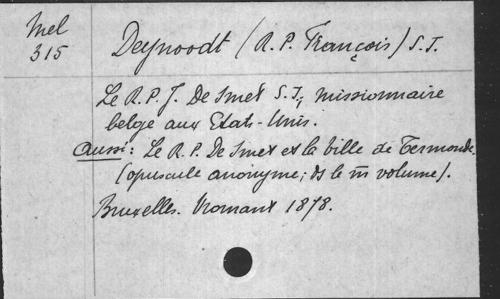 Mel
315
Deynoodt (R.P. François) S.J.
Le R.P.J. De Smet S.J., missionnaire
belge aux Etats-Unis.
Aussi: Le R.P. De Smet et la ville de Termonde.
(opuscule anonyme; ds le m̄ volume).
Bruxelles. Vromant 1878.